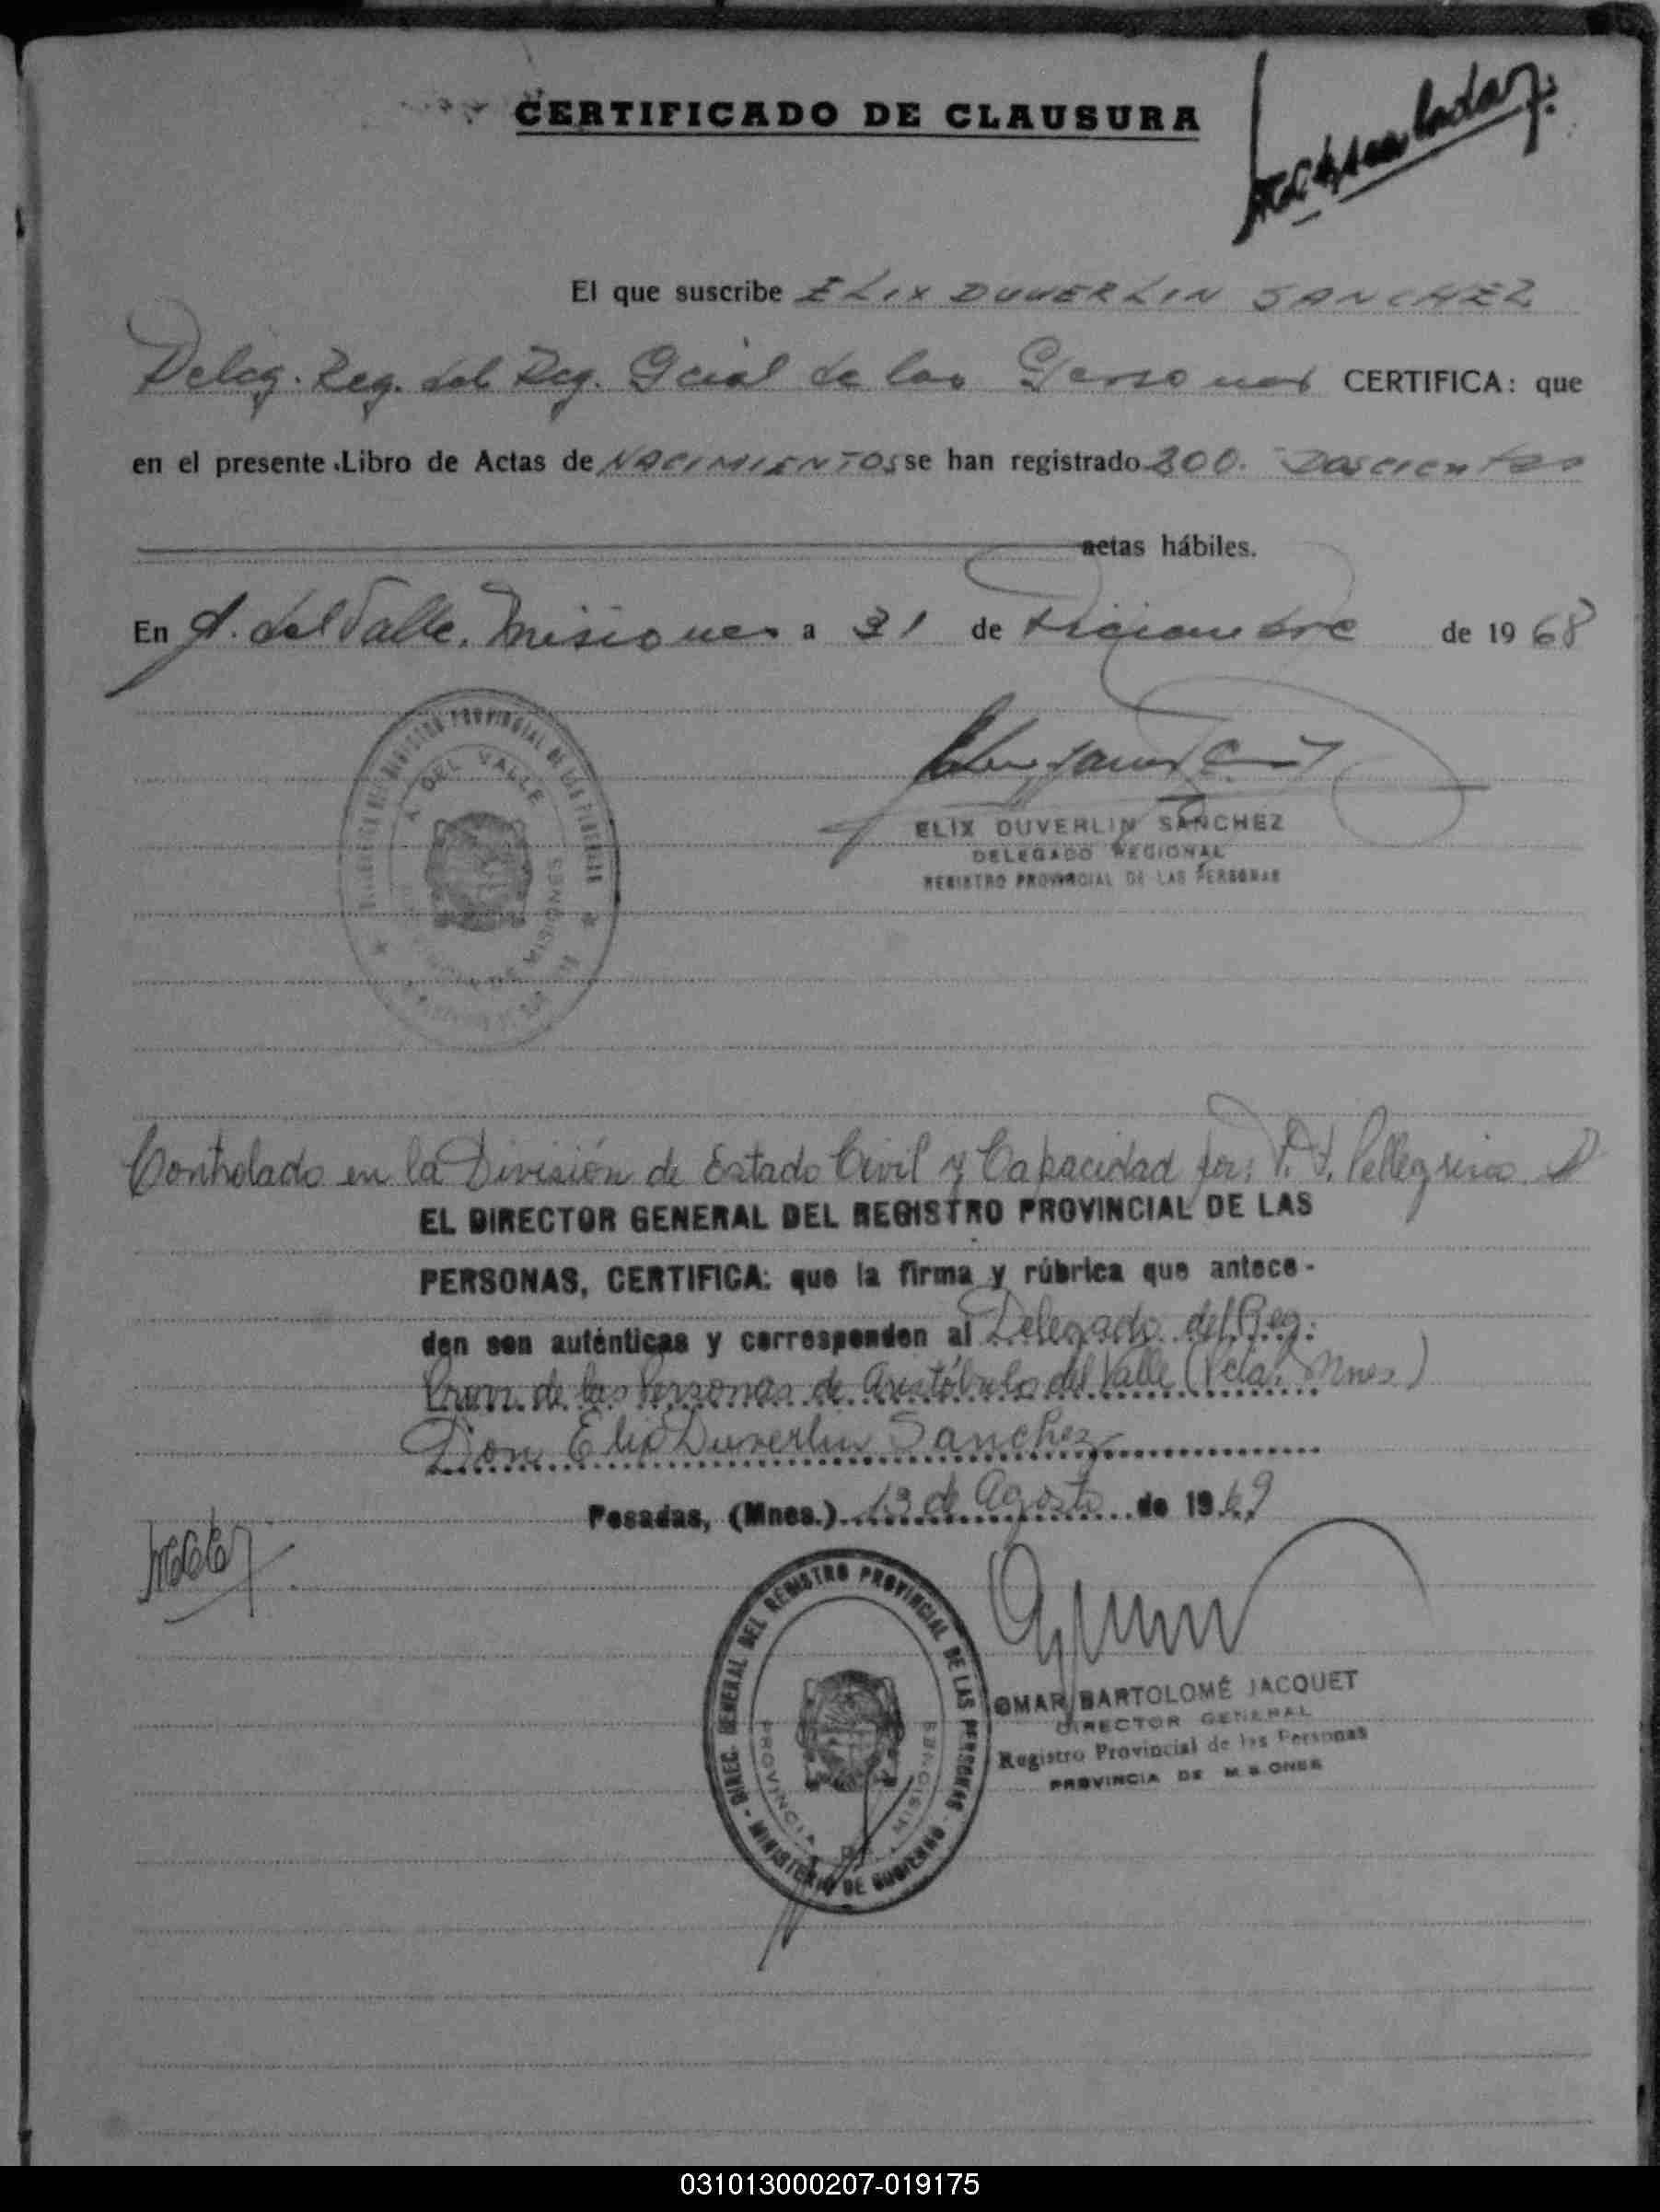 CERTIFICADO DE CLAUSURA
El que suscribe ELIX DUVERLIN SANCHEZ
Deleg. Reg. del Reg. Gcial de las Personas CERTIFICA: que
en el presente Libro de Actas de NACIMIENTOS se han registrado 200. Doscientos
actas hábiles.
En A. del Valle, Misiones a 31 de Diciembre de 1968
PROVINCIAL DE LAS PERSONAS
A. DEL VALLE
MISIONES
ELIX DUVERLIN SANCHEZ
DELEGADO REGIONAL
REGISTRO PROVINCIAL DE LAS PERSONAS
Controlado en la División de Estado Civil y Capacidad por: Pellegrino
EL DIRECTOR GENERAL DEL REGISTRO PROVINCIAL DE LAS
PERSONAS, CERTIFICA: que la firma y rúbrica que antece-
den son auténticas y corresponden al Delegado del Reg.
Prov. de las Personas de Aristóbulo del Valle (Pcia. Mnes)
Don Elix Duverlin Sanchez
Posadas, (Mnes.) 13 de Agosto de 1969
DIREC. GENERAL DEL REGISTRO PROVINCIAL DE LAS PERSONAS - MINISTERIO DE GOBIERNO -
PROVINCIA DE MISIONES
OMAR BARTOLOMÉ JACQUET
DIRECTOR GENERAL
Registro Provincial de las Personas
PROVINCIA DE MISIONES
031013000207-019175